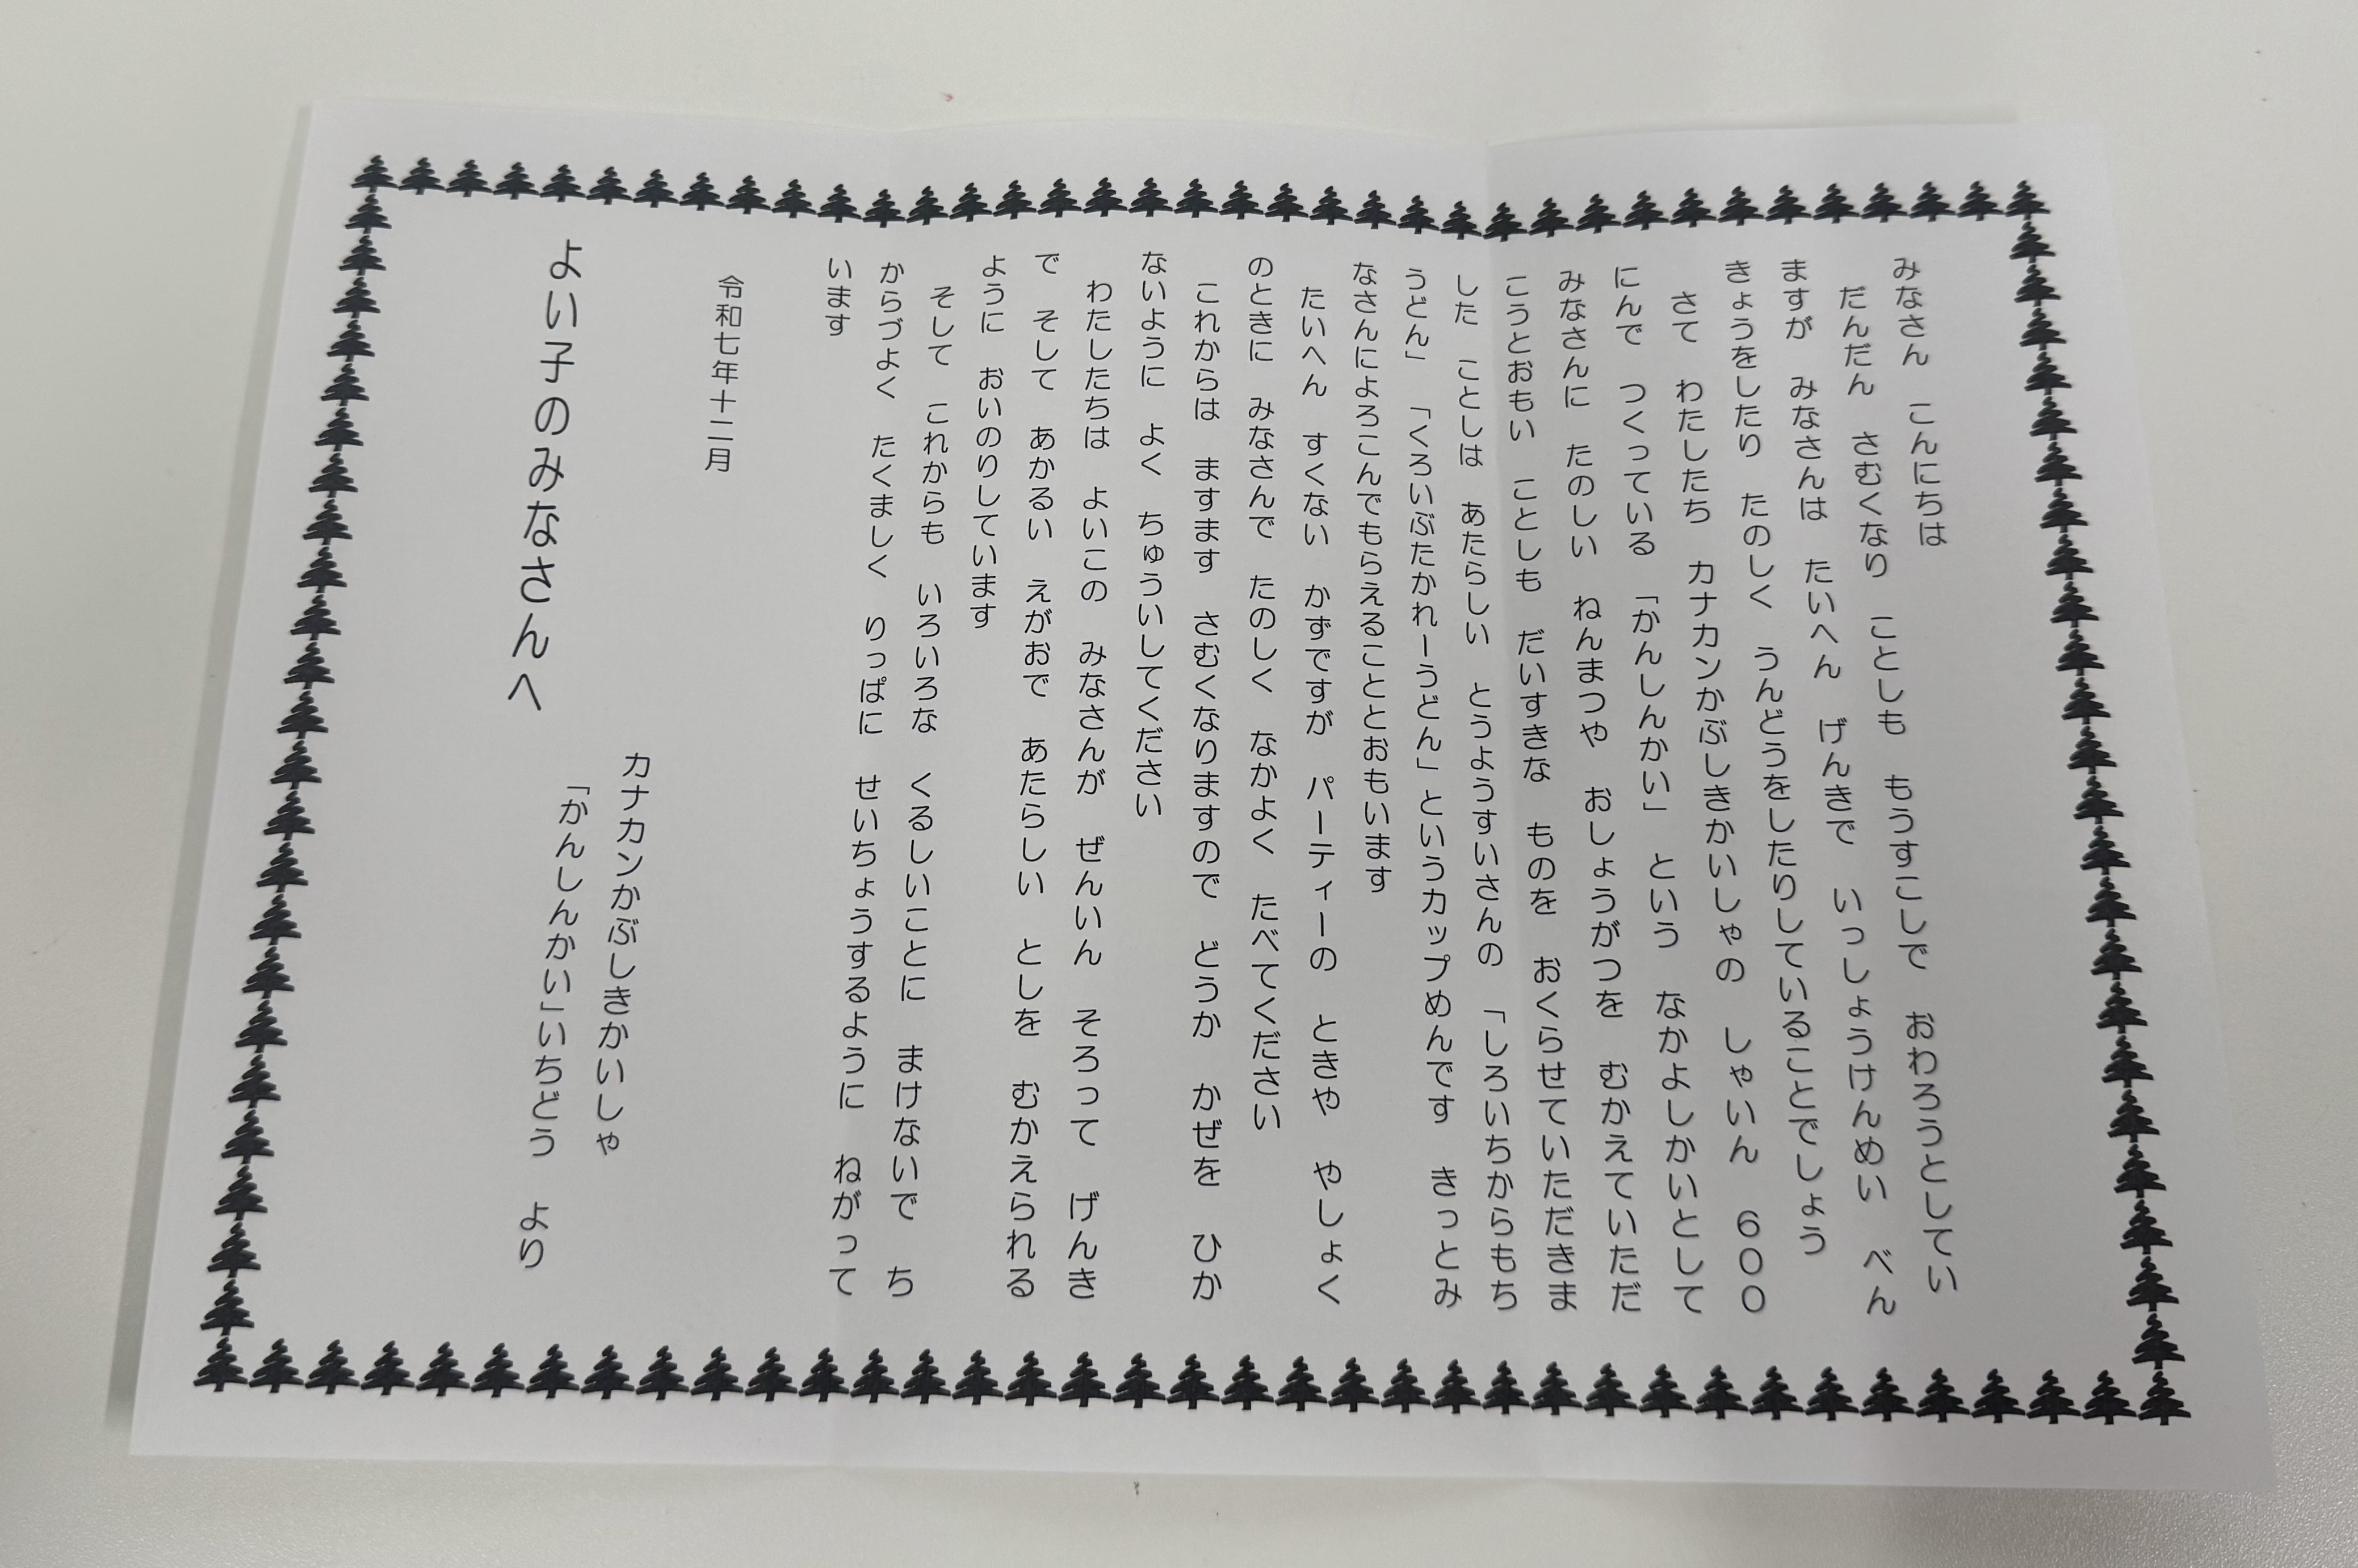 みなさん　こんにちは
　だんだん　さむくなり　ことしも　もうすこしで　おわろうとしてい
ますが　みなさんは　たいへん　げんきで　いっしょうけんめい　べん
きょうをしたり　たのしく　うんどうをしたりしていることでしょう
　さて　わたしたち　カナカンかぶしきかいしゃの　しゃいん　６００
にんで　つくっている　「かんしんかい」　という　なかよしかいとして
みなさんに　たのしい　ねんまつや　おしょうがつを　むかえていただ
こうとおもい　ことしも　だいすきな　ものを　おくらせていただきま
した　ことしは　あたらしい　とうようすいさんの　「しろいちからもち
うどん」　「くろいぶたかれーうどん」というカップめんです　きっとみ
なさんによろこんでもらえることとおもいます
　たいへん　すくない　かずですが　パーティーの　ときや　やしょく
のときに　みなさんで　たのしく　なかよく　たべてください
　これからは　ますます　さむくなりますので　どうか　かぜを　ひか
ないように　よく　ちゅういしてください
　わたしたちは　よいこの　みなさんが　ぜんいん　そろって　げんき
で　そして　あかるい　えがおで　あたらしい　としを　むかえられる
ように　おいのりしています
　そして　これからも　いろいろな　くるしいことに　まけないで　ち
からづよく　たくましく　りっぱに　せいちょうするように　ねがって
います
令和七年十二月
カナカンかぶしきかいしゃ
「かんしんかい」いちどう　より
よい子のみなさんへ